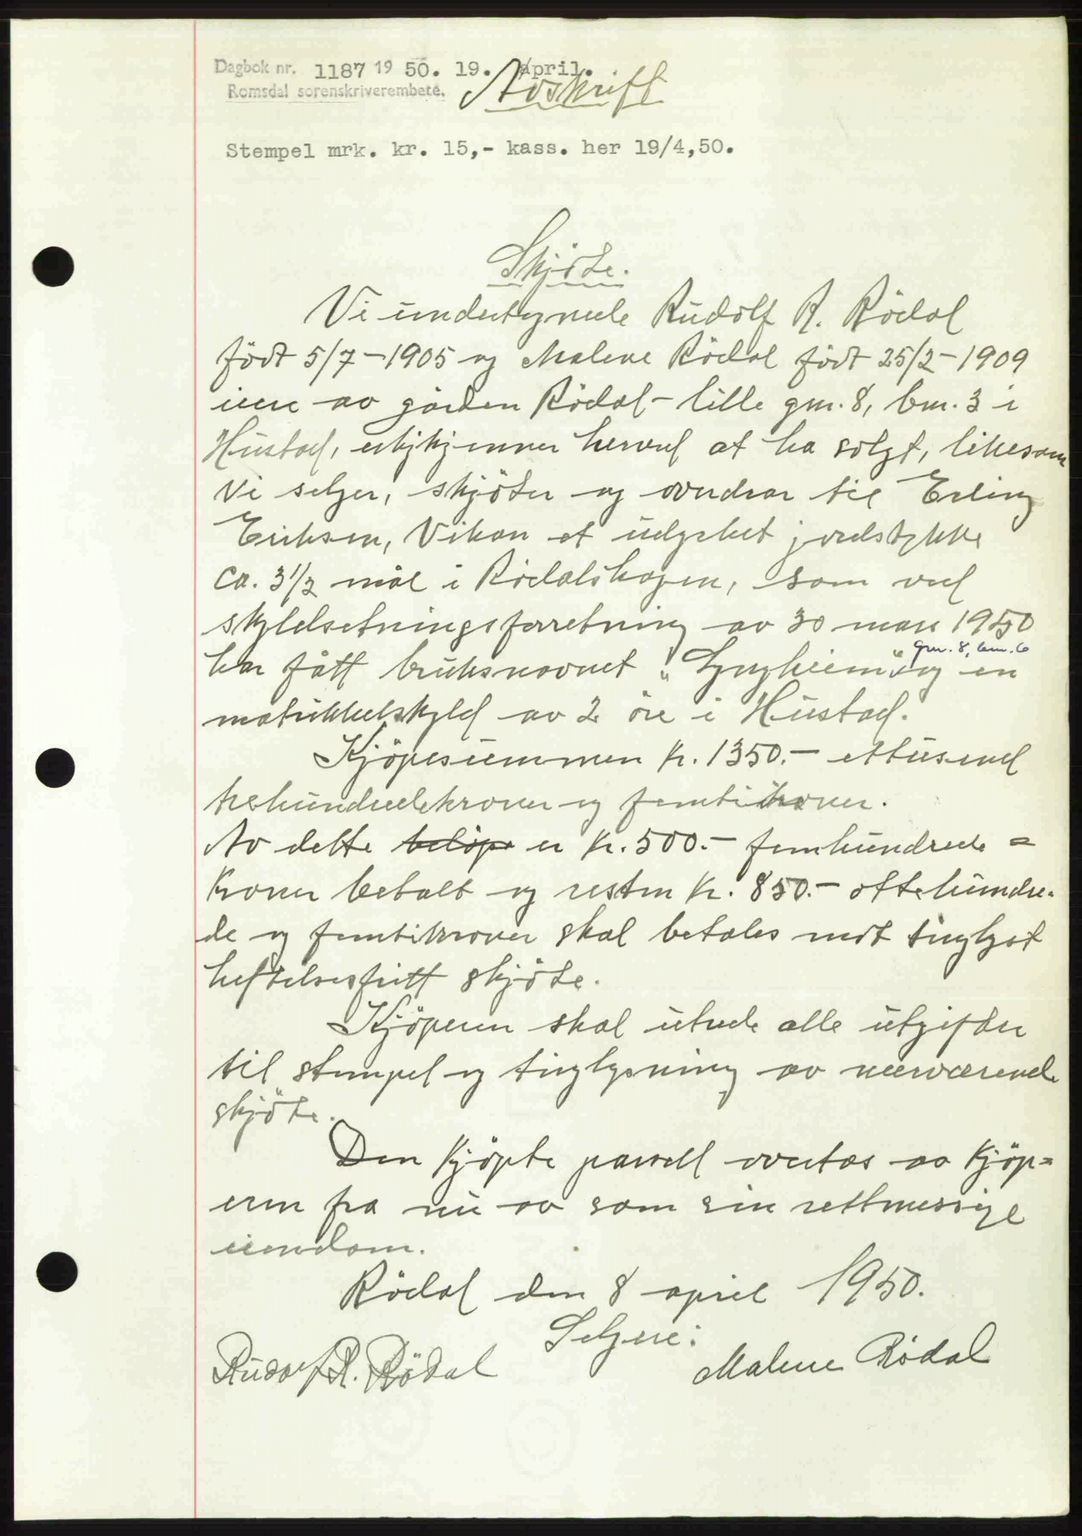 Dagbok nr. 1187 1950. 19. april.
Romsdal sorenskriverembete.
Avskrift
Stempel mrk. kr. 15,- kass. her 19/4,50.
Skjöte.
Vi undertegnede Rudolf R. Rödal
födt 5/7-1905 og Malene Rödal födt 25/2-1909
eiere av gården Rödal-lille gnr. 8, bnr. 3 i
Hustad, erkjenner herved at ha solgt, likesom
Vi selger, skjöter og overdrar til Erling
Eriksen, Vikan et udyrket jordstykke
ca. 3½ mål i Rödalshagen, som ved
skyldsetningsforretning av 30 mars 1950
har fått bruksnavnet "Lyngheim" og en
gnr. 8, bnr. 6
matrikkelskyld av 2 öre i Hustad.
Kjöpesummen kr. 1350.- ettusend
trehundredekroner og femtikroner.
Av dette beløp er kr. 500.- femhundrede =
kroner betalt og resten kr. 850.- ottehundre-
de og femtikroner skal betales mot tinglyst
heftelsesfritt skjöte.
Kjöperen skal utrede alle utgifter
til stempel og tinglysning av nærværende
skjöte.
Den kjöpte parsell overtas av kjöp=
eren fra nu av som sin rettmessige
eiendom.
Rödal den 8 april 1950.
Selgere:
Rudolf R. Rödal Malene Rödal